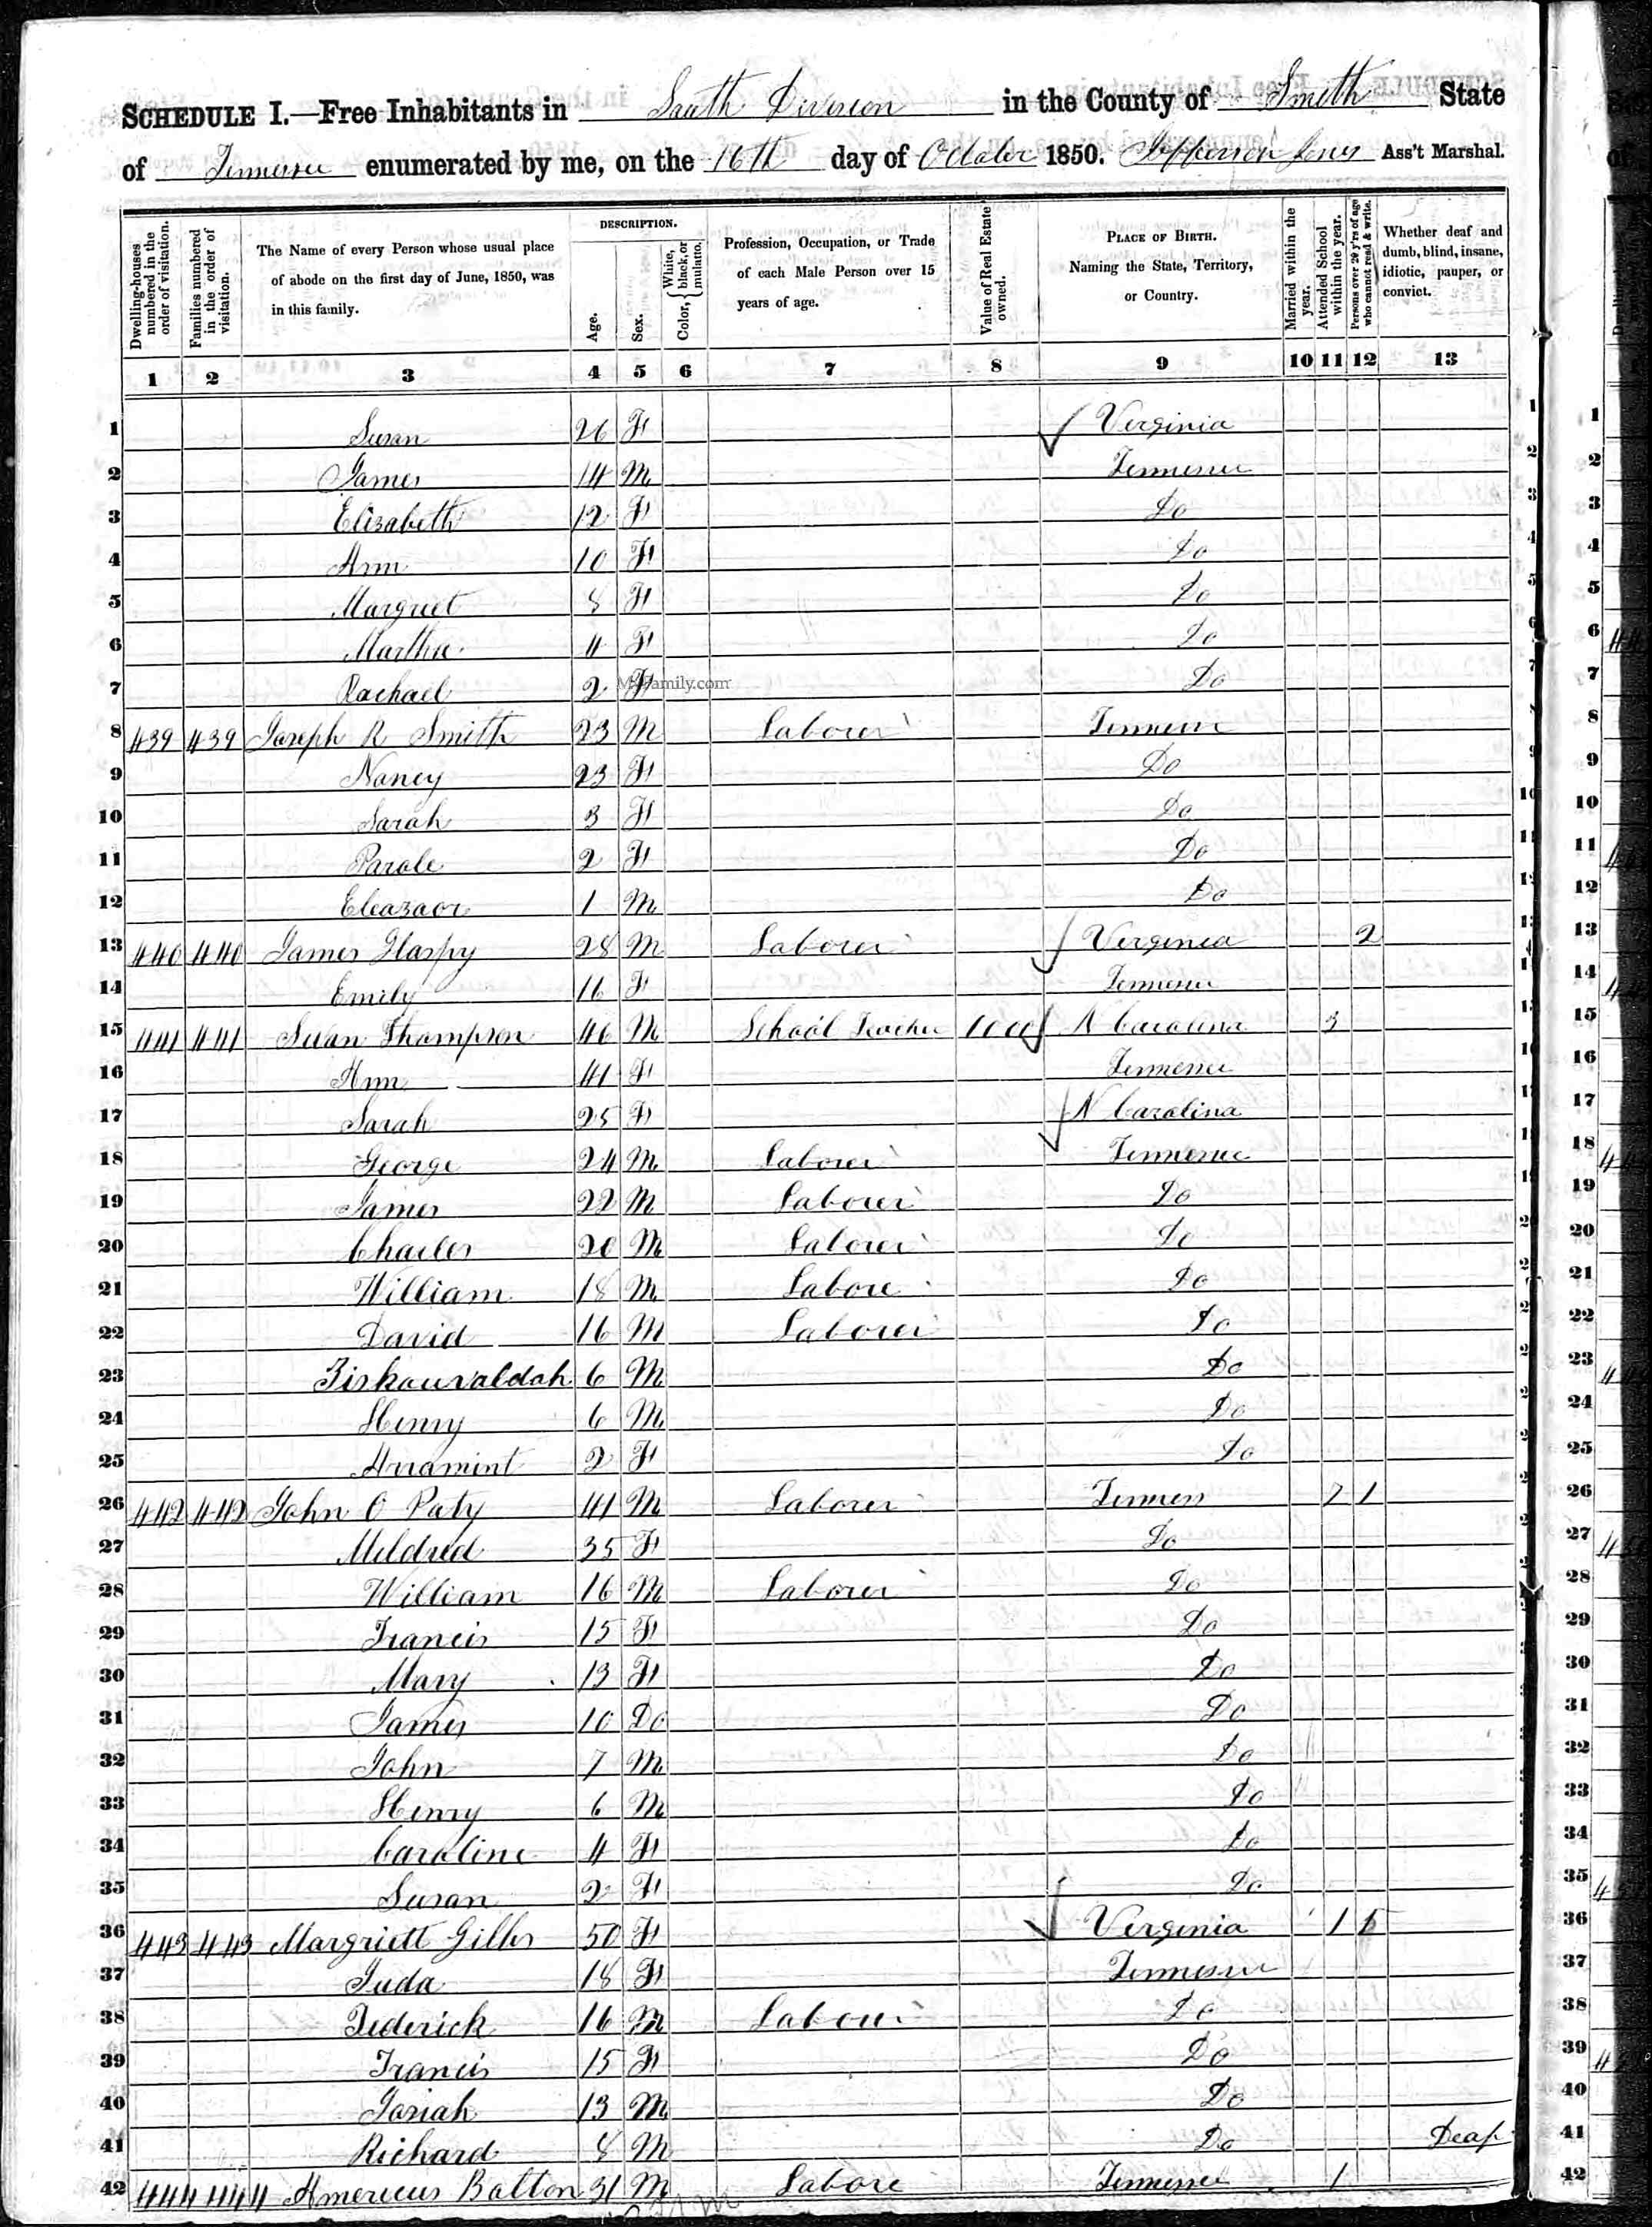 SCHEDULE I.—Free Inhabitants in South Division in the County of Smith State
of Tennessee enumerated by me, on the 16th day of October 1850. Jefferson Jones Ass't Marshal.
Dwelling-houses numbered in the order of visitation.
Families numbered in the order of visitation.
The Name of every Person whose usual place of abode on the first day of June, 1850, was in this family.
DESCRIPTION.
Age.
Sex.
Color, { White, black, or mulatto.
Profession, Occupation, or Trade of each Male Person over 15 years of age.
Value of Real Estate owned.
PLACE OF BIRTH. Naming the State, Territory, or Country.
Married within the year.
Attended School within the year.
Persons over 20 y'rs of age who cannot read & write.
Whether deaf and dumb, blind, insane, idiotic, pauper, or convict.
1 2 3 4 5 6 7 8 9 10 11 12 13
1 Susan 26 F Virginia
2 James 14 M Tennessee
3 Elizabeth 12 F Do
4 Ann 10 F Do
5 Margret 8 F Do
6 Martha 4 F Do
7 Rachael 2 F Do
MyFamily.com
8 439 439 Joseph R Smith 23 M Laborer Tennessee
9 Nancy 23 F Do
10 Sarah 3 F Do
11 Parale 2 F Do
12 Eleazaor 1 M Do
13 440 440 James Haspy 28 M Laborer Virginia 2
14 Emily 16 F Tennessee
15 441 441 Swan Thompson 46 M School Teacher 1000 N Carolina 3
16 Ann 41 F Tennessee
17 Sarah 25 F N Carolina
18 George 24 M Laborer Tennessee
19 James 22 M Laborer Do
20 Charles 20 M Laborer Do
21 William 18 M Labore Do
22 David 16 M Laborer Do
23 Ziskauvaldah 6 M Do
24 Henry 6 M Do
25 Arramint 2 F Do
26 442 442 John O Paty 41 M Laborer Tenness 7 1
27 Mildred 35 F Do
28 William 16 M Laborer Do
29 Francis 15 F Do
30 Mary 13 F Do
31 James 10 Do Do
32 John 7 M Do
33 Henry 6 M Do
34 Caroline 4 F Do
35 Susan 2 F Do
36 443 443 Margriett Gilles 50 F Virginia 1
37 Juda 18 F Tennessee
38 Federick 16 M Laborer Do
39 Francis 15 F Do
40 Josiah 13 M Do
41 Richard 8 M Do Deaf
42 444 444 Americus Balton 31 M Labore Tennessee 1